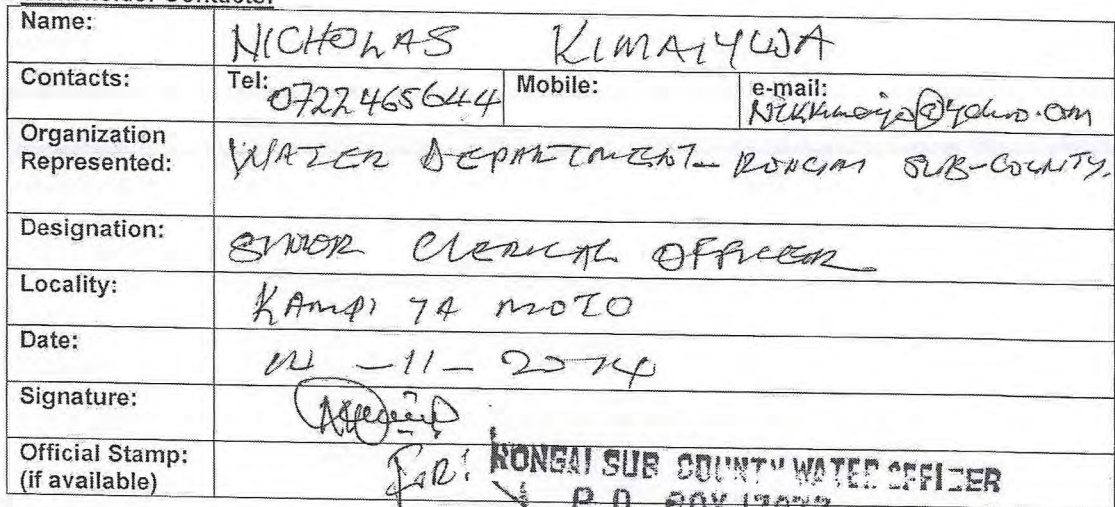 Name: NICHOLAS KIMAIYWA
Contacts: Tel: 0722465644 Mobile: e-mail:
Organization Represented: WATER DEPARTMENT RONGAI SUB-COUNTY.
Designation: SENIOR CLERICAL OFFICER
Locality: KAMPI YA MOTO
Date: -11-2014
Signature:
Official Stamp: (if available) FOR: RONGAI SUB COUNTY WATER OFFICER
P.O. BOX